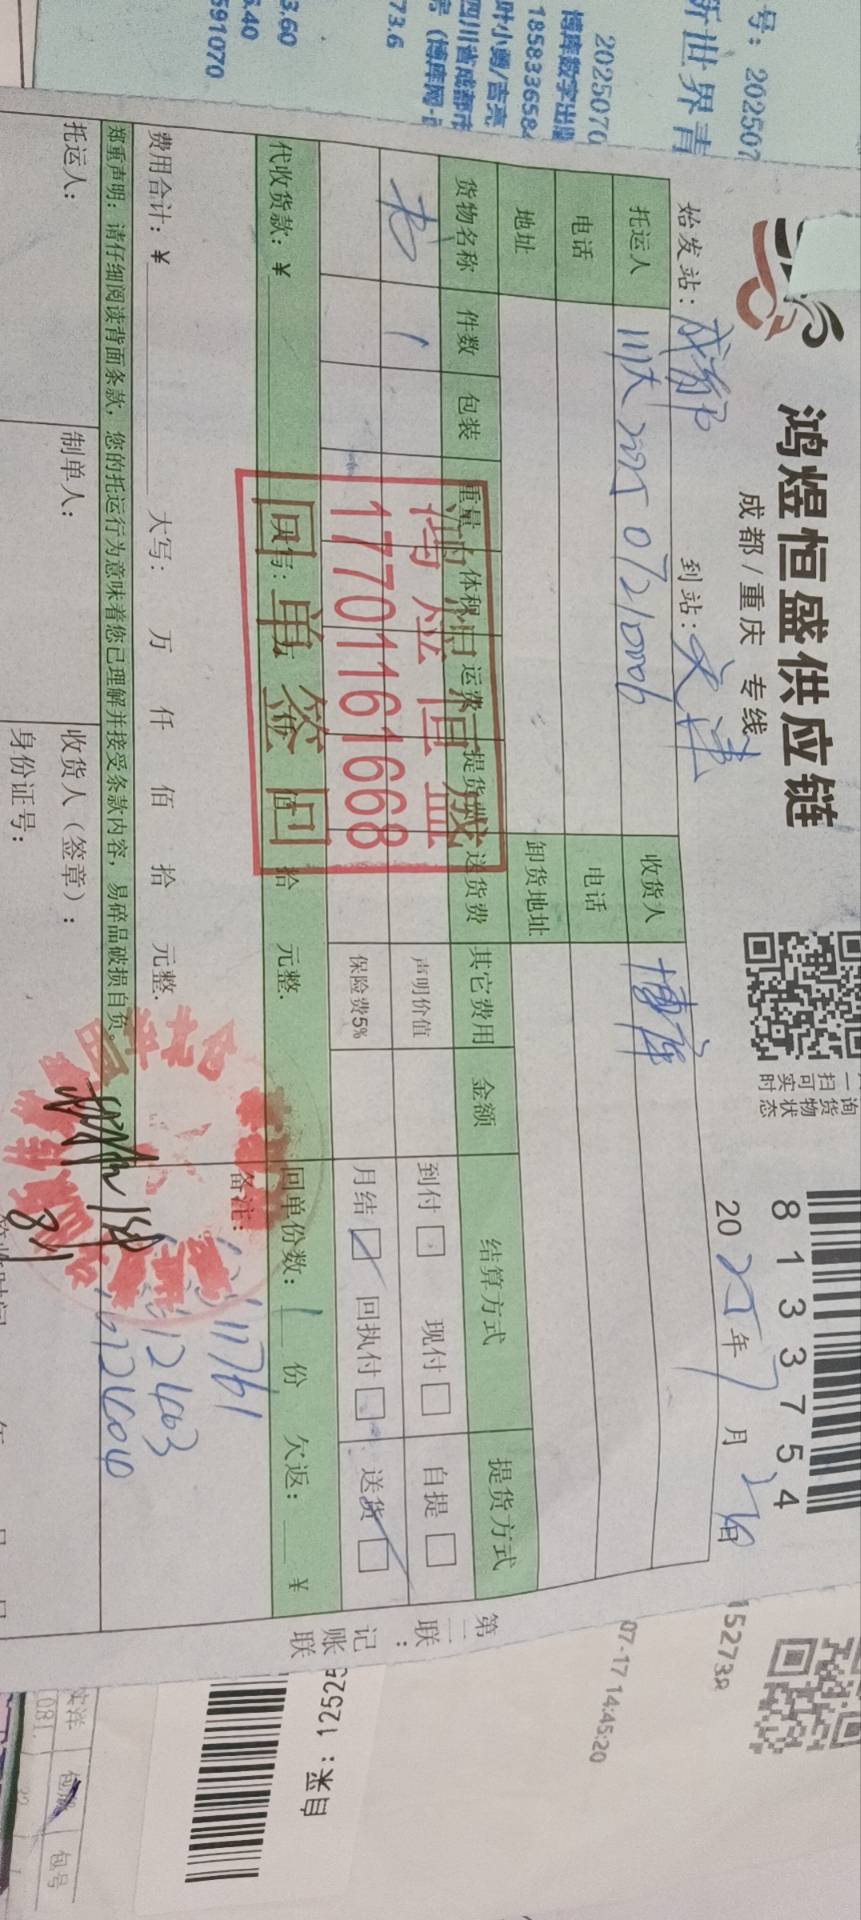 鸿煜恒盛供应链
成都/重庆 专线
询货物状态
扫可实时
81337754
始发站：成都 到站：天津 2025年7月 日
托运人 川大 20250721006 收货人 博库
电话 电话
地址 卸货地址
货物名称 件数 包装 重量 体积 运费 提货费 送货费 其它费用 金额 结算方式 提货方式
书 1 声明价值 到付 □ 现付 □ 自提 □
保险费5% 月结 ☑ 回执付 □ 送货 ☑
代收货款：￥ 大写： 万 佰 拾 元整. 回单份数：1 份 欠返： ￥
鸿煜恒盛
17701161668
回单签回
费用合计：￥ 大写： 万 仟 佰 拾 元整. 备注：
11761
12403
郑重声明：请仔细阅读背面条款，您的托运行为意味着您已理解并接受条款内容，易碎品破损自负。
托运人： 制单人： 收货人（签章）：
身份证号：
第二联：记账联
号：202507
新世界青
2025070
博库数字出版
1858336584
叶小勇/吉亮
四川省成都市
（博库网-
73.6
3.60
5.40
591070
152738
07-17 14:45:20
自采：12525
实洋 包册 包号
081.